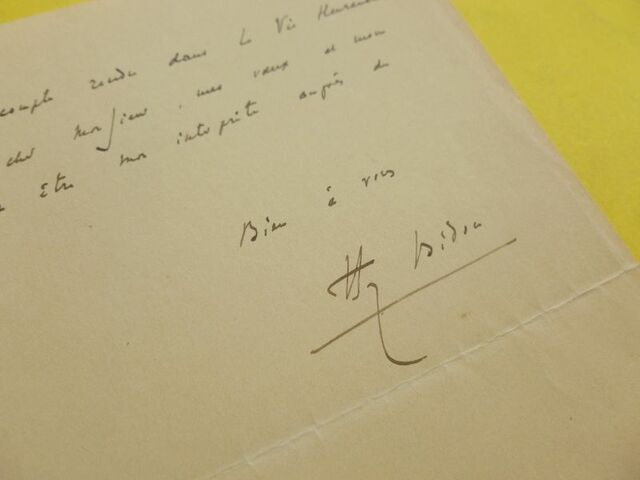 compte rendu dans La Vie Heureuse
cher Monsieur, mes vœux et mon
être mon interprète auprès de
Bien à vous
Hy Bidou